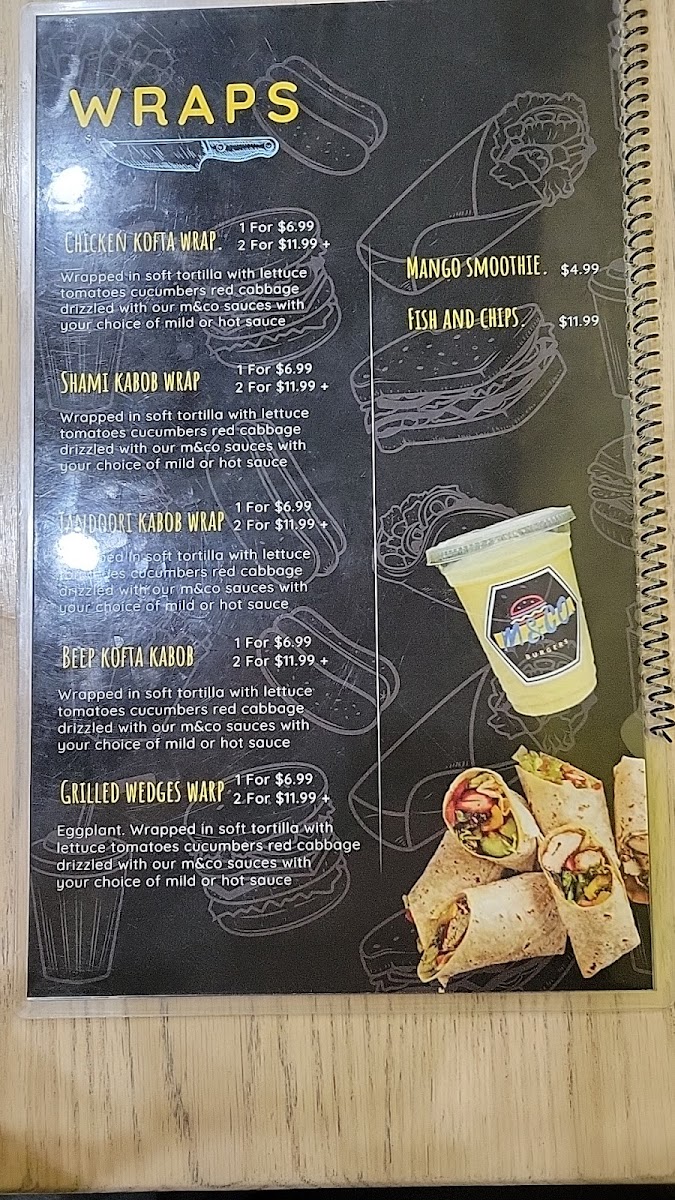 WRAPS
CHICKEN KOFTA WRAP.
1 For $6.99
2 For $11.99 +
Wrapped in soft tortilla with lettuce
tomatoes cucumbers red cabbage
drizzled with our m&co sauces with
your choice of mild or hot sauce
SHAMI KABOB WRAP
1 For $6.99
2 For $11.99 +
Wrapped in soft tortilla with lettuce
tomatoes cucumbers red cabbage
drizzled with our m&co sauces with
your choice of mild or hot sauce
TANDOORI KABOB WRAP
1 For $6.99
2 For $11.99 +
in soft tortilla with lettuce
cucumbers red cabbage
drizzled with our m&co sauces with
your choice of mild or hot sauce
BEEP KOFTA KABOB
1 For $6.99
2 For $11.99 +
Wrapped in soft tortilla with lettuce
tomatoes cucumbers red cabbage
drizzled with our m&co sauces with
your choice of mild or hot sauce
GRILLED WEDGES WARP
1 For $6.99
2 For $11.99 +
Eggplant. Wrapped in soft tortilla with
lettuce tomatoes cucumbers red cabbage
drizzled with our m&co sauces with
your choice of mild or hot sauce
MANGO SMOOTHIE. $4.99
FISH AND CHIPS. $11.99
M & CO
BURGERS